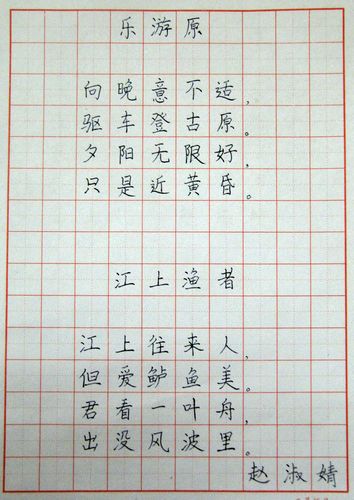 乐游原
向晚意不适，
驱车登古原。
夕阳无限好，
只是近黄昏。
江上渔者
江上往来人，
但爱鲈鱼美。
君看一叶舟，
出没风波里。
赵淑婧